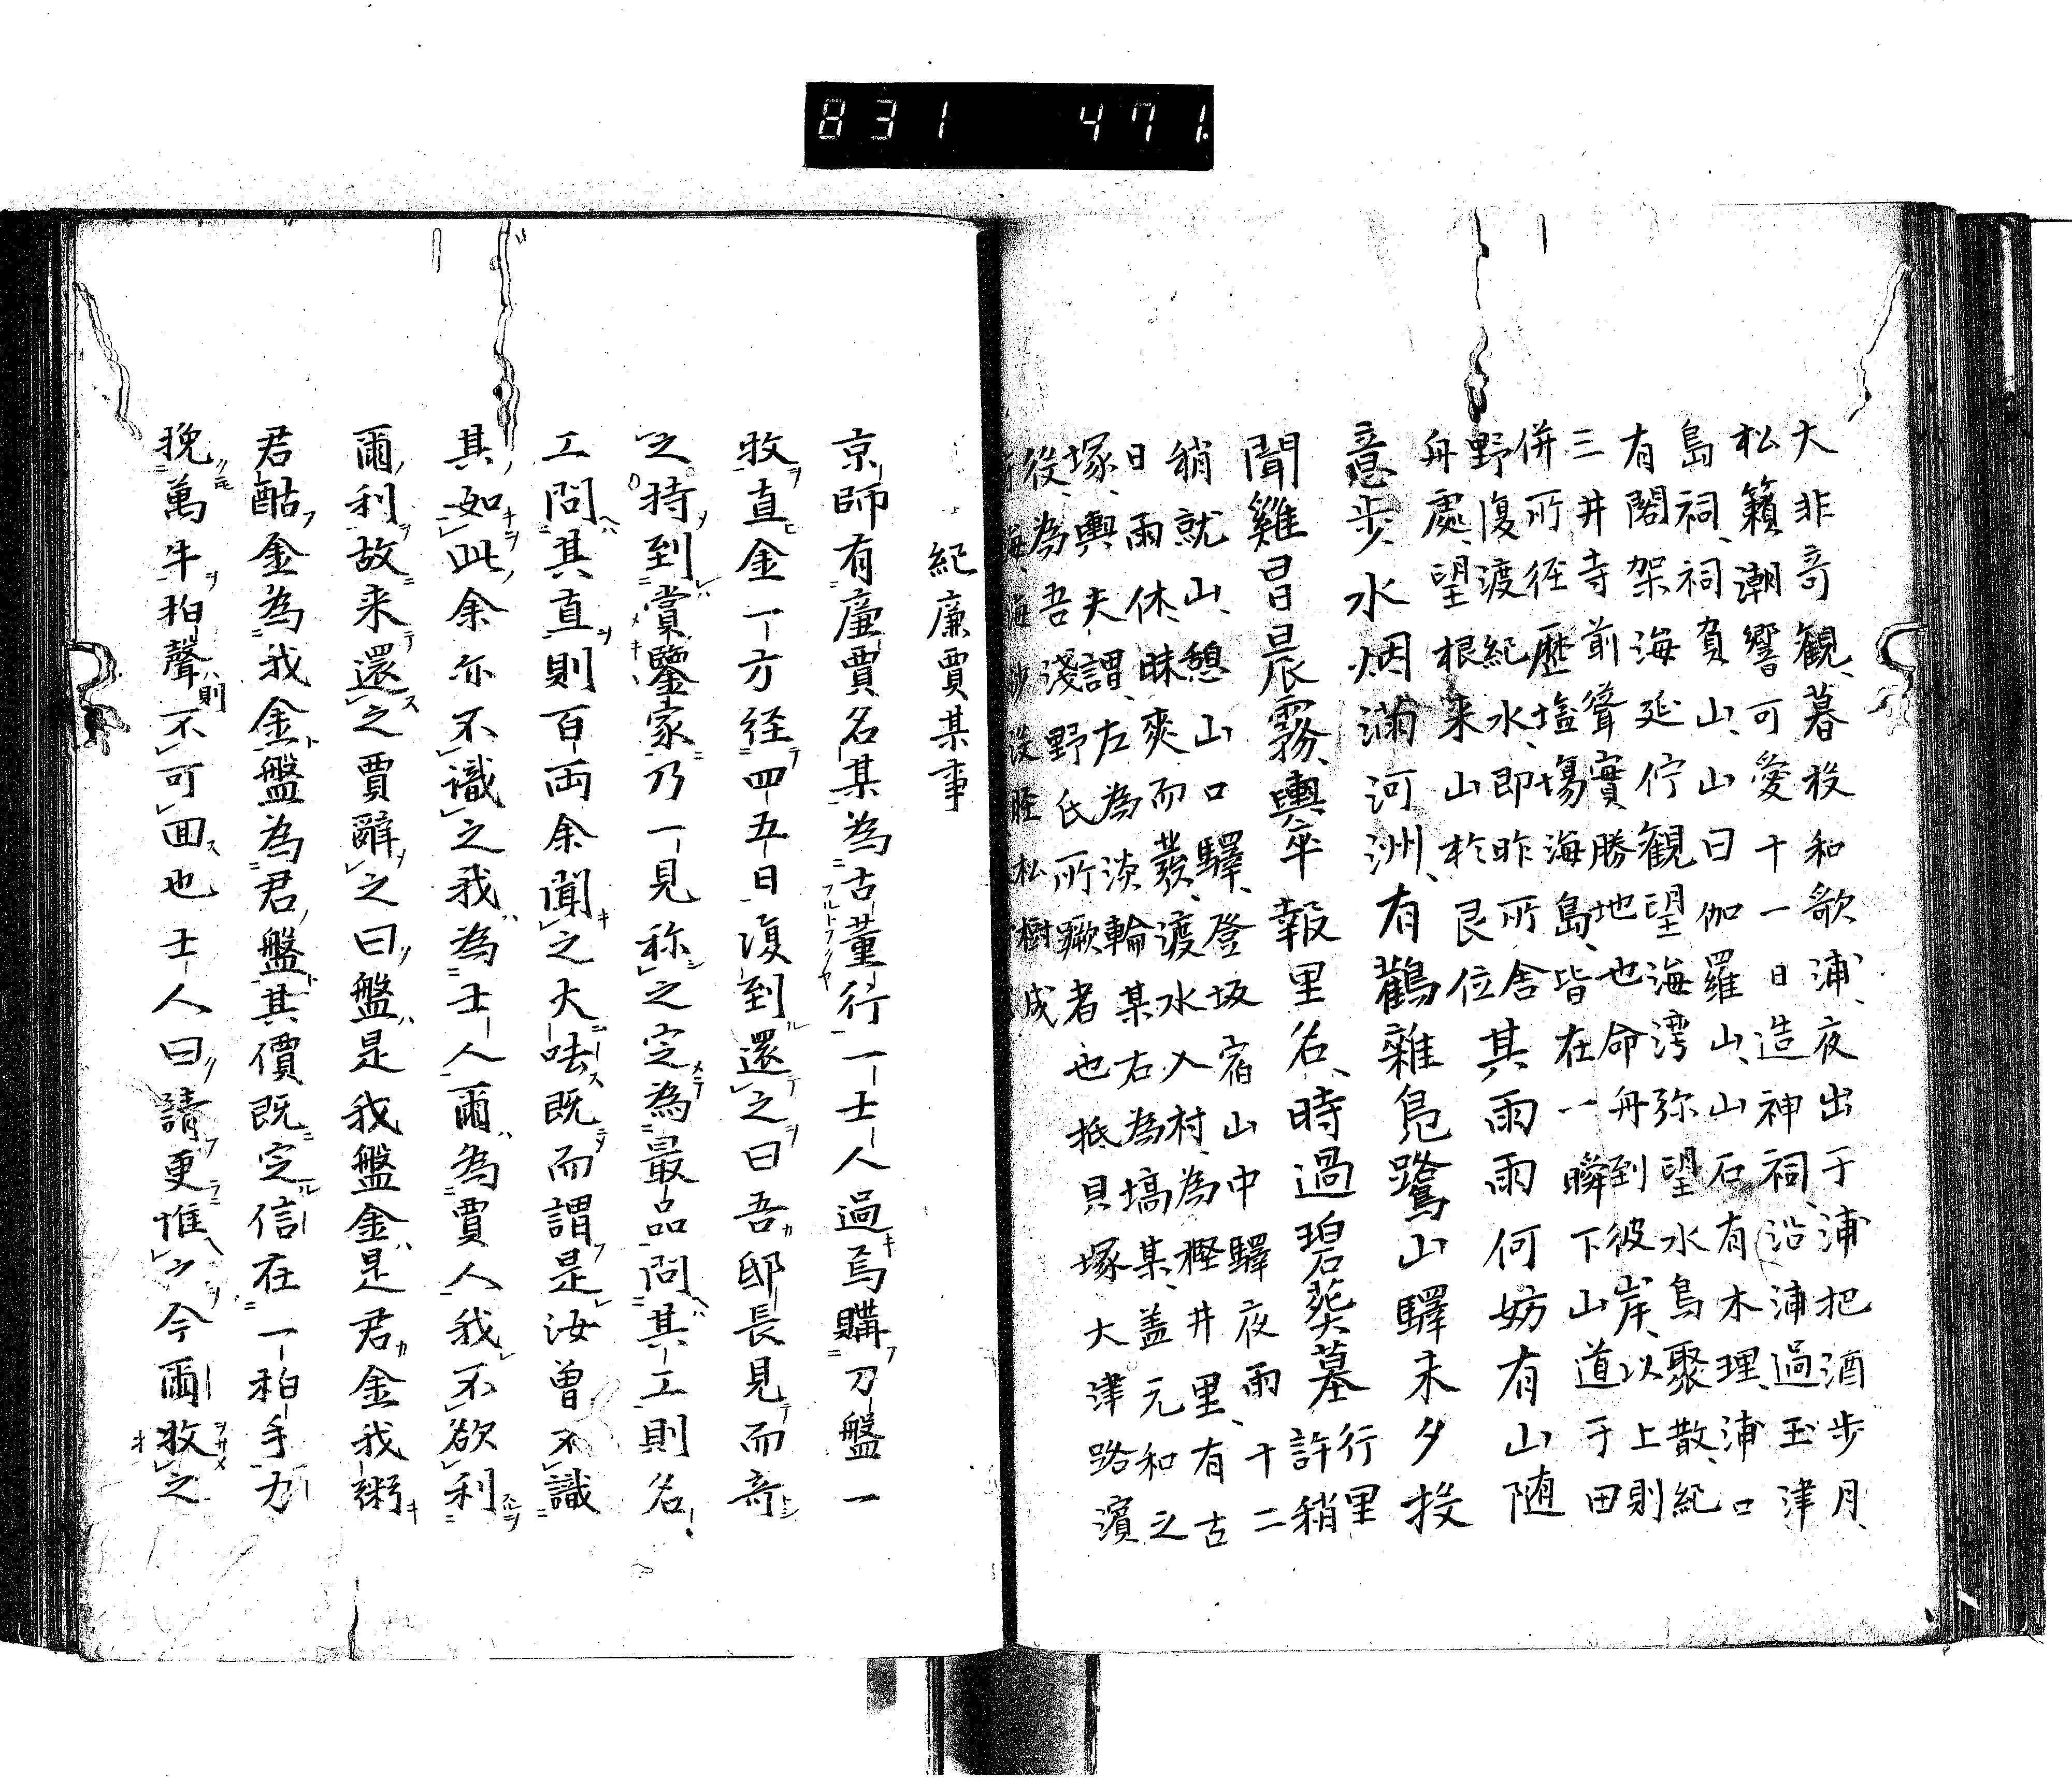 831 471
大非奇観、暮投和歌浦、夜出于浦把酒步月、
松籟潮響可愛十一日造神祠、沿浦過玉津
島祠、祠負山、山曰伽羅山、山石有木理、浦口
有閣架海延佇観望海湾弥望水鳥聚散、紀
三井寺前聳實勝地也命舟到彼岸、以上則
併所径歴塩場海島、皆在一瞬下山道于田
野復渡紀水、即昨所舎其雨雨何妨有山随
舟處、望根来山於艮位
意步、水烟満河洲、有鸛雜鳬鷺山驛未夕投
聞雞曷晨霧、輿卒報里名、時過碧葵墓許行里
稍就山、憩山口驛、登坂宿山中驛夜雨、十二
日雨休、昧爽而發、渡水入村、為樫井里、有古
塚、輿夫謂、左為淡輪某右為塙某、盖元和之
役、為吾淺野氏所蹶者也抵貝塚大津路濱
海、海沙浅陸松樹成
紀廉賈某事
京師有廉賈名某為古董行一士人過焉購刀盤一
收直金一方径四五日復到還之曰吾邸長見而奇
之持到賞鑒家乃一見称之定為最品問其工則名
工問其直則百両余聞之大呿既而謂是汝曽不識
其如此余亦不識之我為士人爾為賈人我不欲利
爾利故来還之賈辭之曰盤是我盤金是君金我粥
君酤金為我金盤為君盤其價既定信在一拍手力
挽萬牛拍聲則不可囬也士人曰請更惟之今爾收之